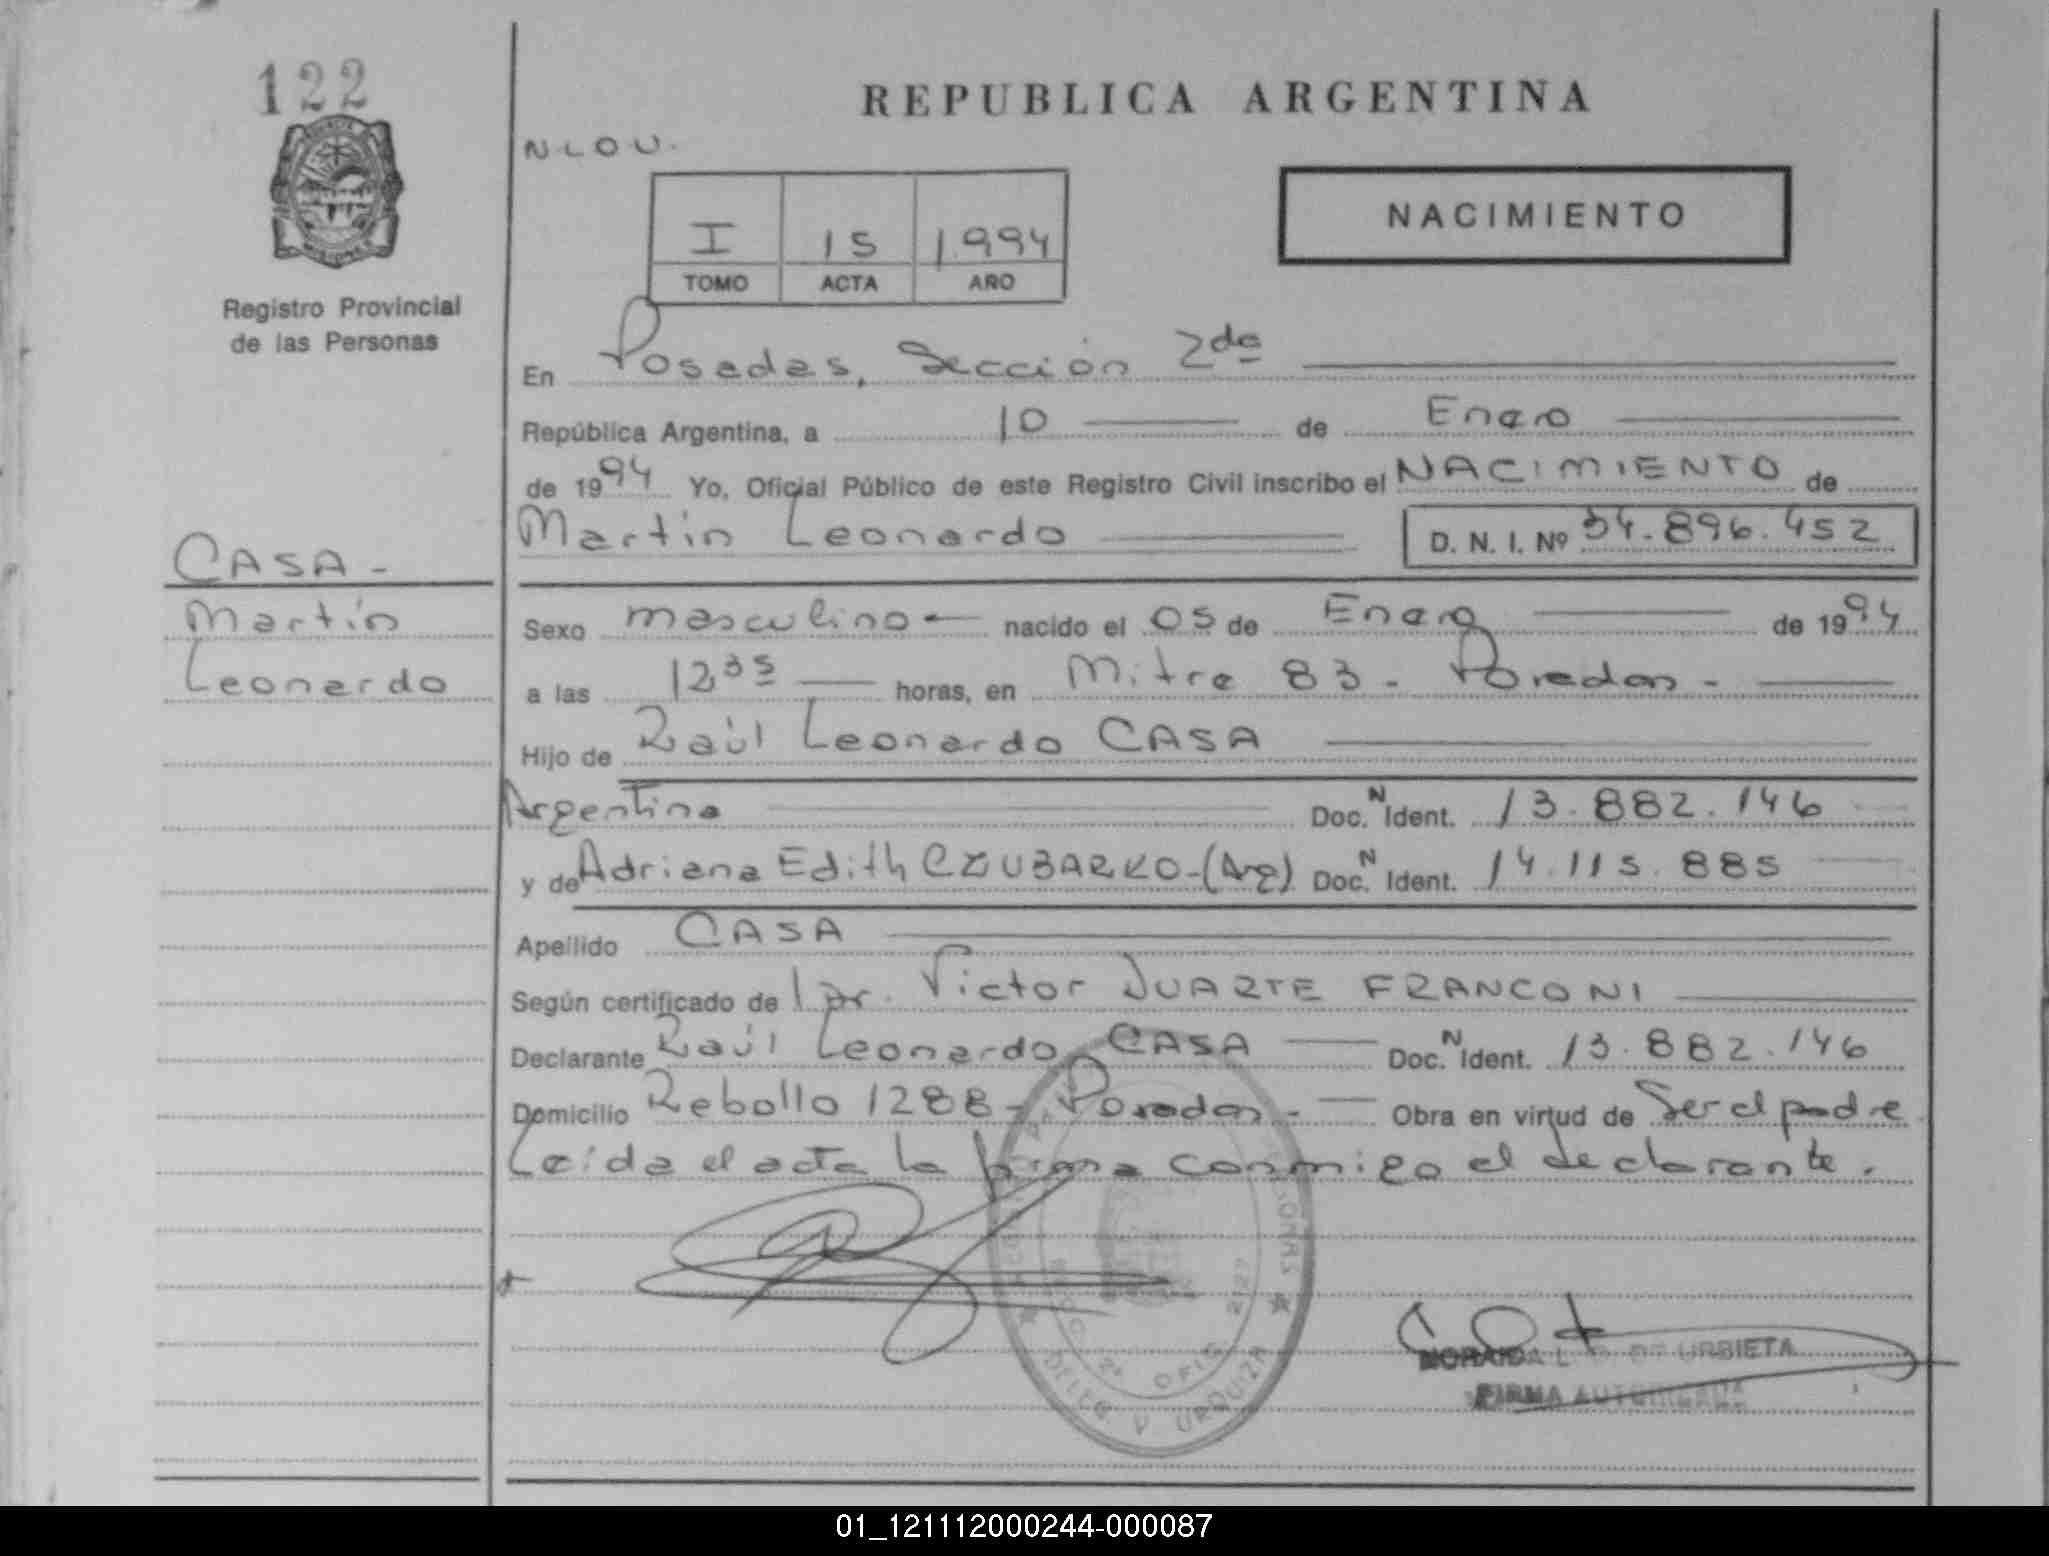 122
REPUBLICA ARGENTINA
N L O U.
NACIMIENTO
I 15 1.994
TOMO ACTA AÑO
Registro Provincial
de las Personas
En Posadas, Sección 2da
República Argentina, a 10 de Enero
de 1994 Yo, Oficial Público de este Registro Civil inscribo el NACIMIENTO de
Martín Leonardo D. N. I. Nº 34.896.452
CASA -
Martín
Leonardo
Sexo masculino nacido el 05 de Enero de 1994
a las 12,35 horas, en Mitre 83 - Posadas -
Hijo de Raúl Leonardo CASA
Argentino Doc. N Ident. 13.882.146
y de Adriana Edith CZUBARKO - (Arg) Doc. N Ident. 14.115.885
Apellido CASA
Según certificado de Dr. Victor DUARTE FRANCONI
Declarante Raúl Leonardo CASA Doc. N Ident. 13.882.146
Domicilio Rebollo 1288 - Posadas - Obra en virtud de Ser el padre
Leída el acta la firma conmigo el declarante.
DE URBIETA
FIRMA AUTORIZADA
DELEG. V. URQUIZA
01_121112000244-000087